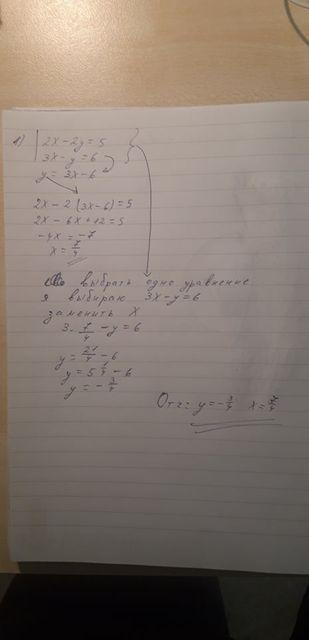 1) 2x-2y=5
3x-y=6
y=3x-6
2x-2(3x-6)=5
2x-6x+12=5
-4x=-7
x=7/4
выбрать одно уравнение
я выбираю 3x-y=6
заменить x
3·7/4-y=6
y=21/4-6
y=5 1/4-6
y=-3/4
Отч: y=-3/4 x=7/4